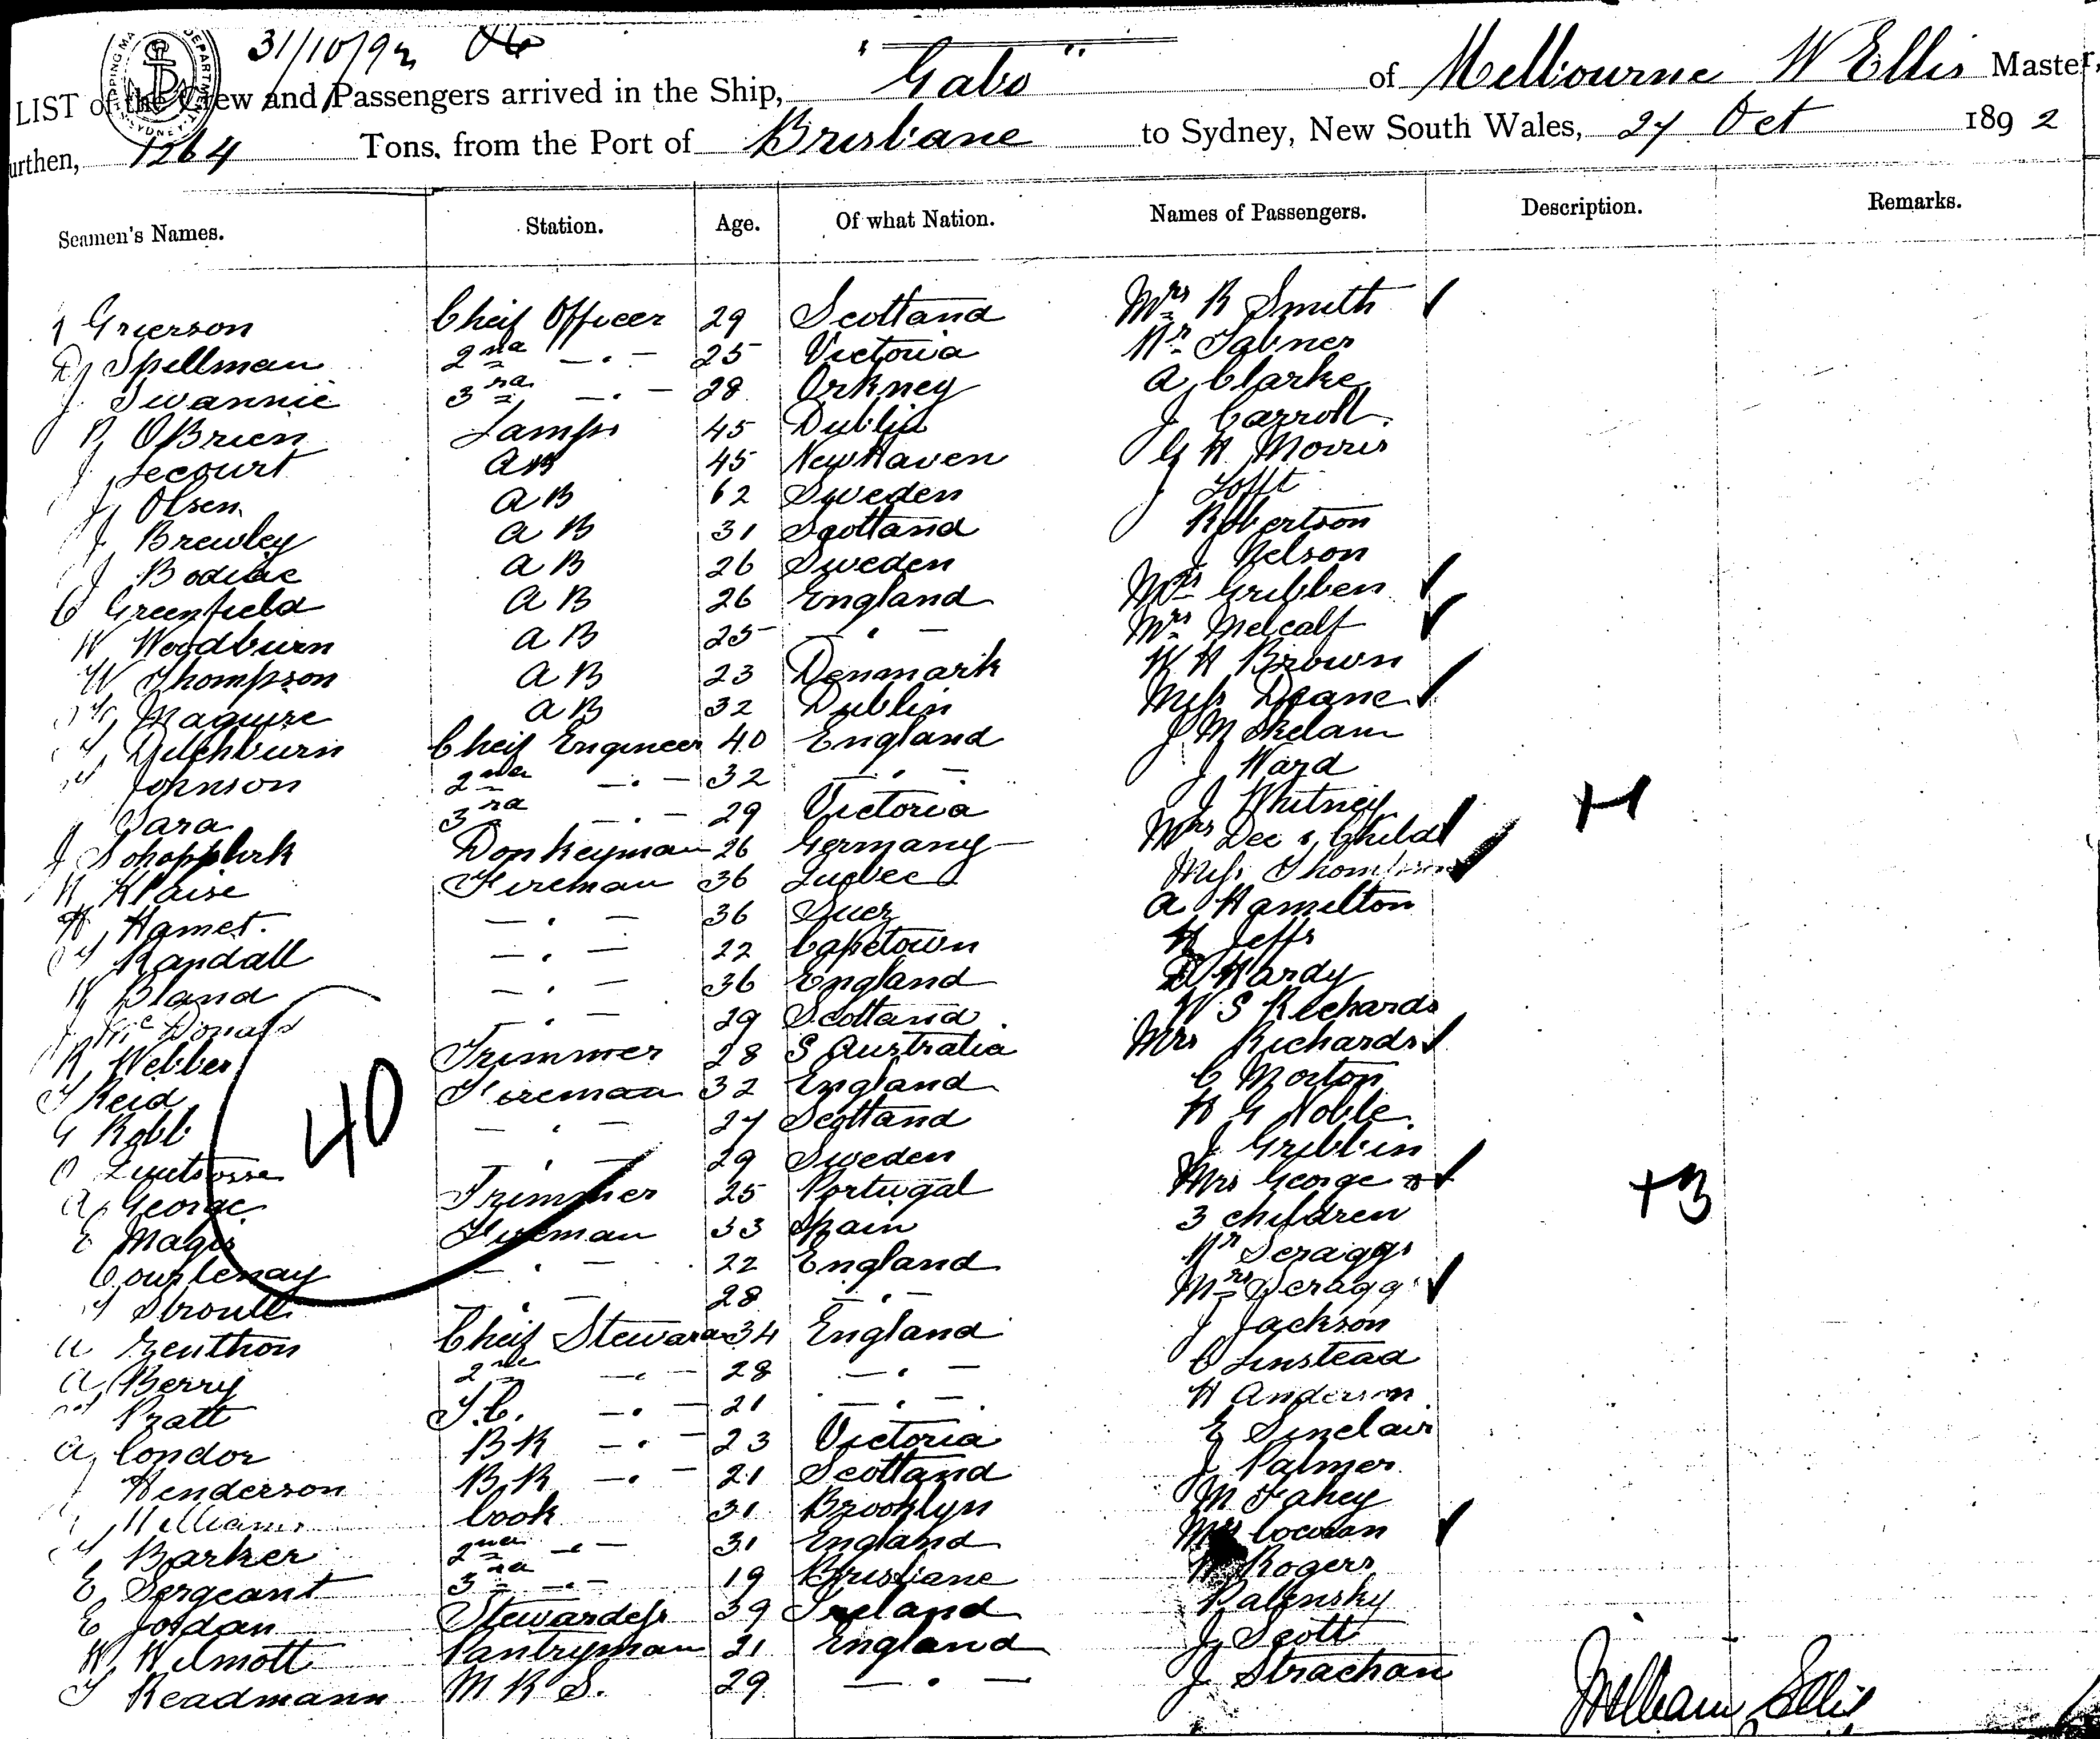 31/10/92
SHIPPING MA DEPARTMENT SYDNEY
LIST of the Crew and Passengers arrived in the Ship, "Gabo" of Melbourne W Ellis Master,
urthen, 1264 Tons, from the Port of Brisbane to Sydney, New South Wales, 27 Oct 1892
Seamen's Names. Station. Age. Of what Nation. Names of Passengers. Description. Remarks.
Grierson Cheif Officer 29 Scotland Mrs R Smith ✓
D Spellman 2nd — . — 25 Victoria Mr Tabner
J Swannie 3rd — . — 28 Orkney A Clarke
R OBrien Lamps 45 Dublin J Carroll
J Lecourt AB 45 NewHaven G H Morris
J Olsen AB 62 Sweden J Tofft
J Brewley AB 31 Scotland Robertson
J Bodiac AB 26 Sweden J Nelson
C Greenfield AB 26 England Mrs Gribben ✓
W Woodburn AB 25 — " — Mrs Metcalf ✓
W Thompson AB 23 Denmark W H Brown
Maguire AB 32 Dublin Miss Deane ✓
Dutchburn Cheif Engineer 40 England J M Skelam
Johnson 2nd — . — 32 — " — J Ward
Sara 3rd — . — 29 Victoria J Whitney
J Donkeyman 26 Germany Mrs Dee & Child ✓ +1
Klaise Fireman 36 Quebec Miss Thompson ✓
Hamet. — . — 36 Suez A Hamilton
Randall — . — 22 Capetown H Jeffs
W Bland — . — 36 England D Hardy
J McDonald — . — 29 Scotland W S Richards
R Webber Trimmer 28 S Australia Mrs Richards ✓
T Reid Fireman 32 England C Morton
G Robb — " — 27 Scotland H G Noble
— " — 29 Sweden J Gribbin
A George Trimmer 25 Portugal Mrs George & ✓
E Magis Fireman 33 Spain 3 children +3
Courtenay — . — 22 England Mr Scraggs
Stroull — . — 28 — " — Mrs Scragg ✓
A Zeuthon Cheif Steward 34 England J Jackson
A Berry 2nd — " — 28 — " — C Linstead
Pratt F.C. — . — 21 — " — H Anderson
A Condor BR — . — 23 Victoria E Sinclair
Henderson B.R — . — 21 Scotland J Palmer
Williams Cook 31 Brooklyn M Fahey
Barker 2nd — " — 31 England Mrs Cowan ✓
E Sergeant 3rd — . — 19 Brisbane Rogers
E Jordan Stewardess 39 Ireland Palensky
W Wilmott Pantryman 21 England J Scott
T Readmann M R S. 29 — " — J Strachan
40
William Ellis